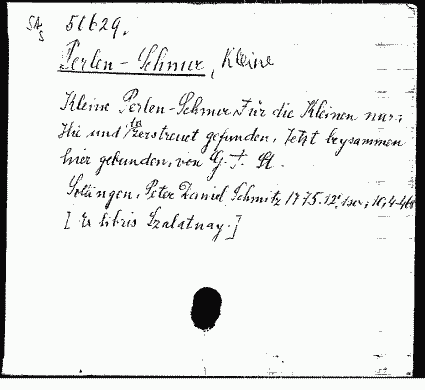 SA S 51629.
Perlen-Schnur, Kleine
Kleine Perlen-Schnur Für die Kleinen nur:
Hie und da zerstreuet gefunden, Jetzt beysammen
hier gebunden, von G. F. St.
Solingen, Peter Daniel Schmitz 1775. 12°.
[Ex libris Szalatnay.]